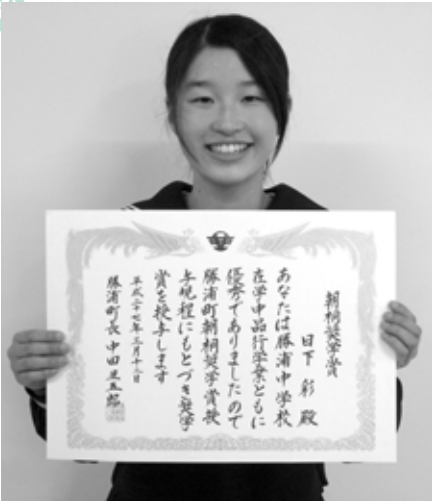 朝桐奨学賞
日下 彩 殿
あなたは勝浦中学校
在学中品行学業ともに
優秀でありましたので
勝浦町朝桐奨学賞授
与規程にもとづき奨学
賞を授与します
平成二十七年三月十三日
勝浦町長 中田丑五郎